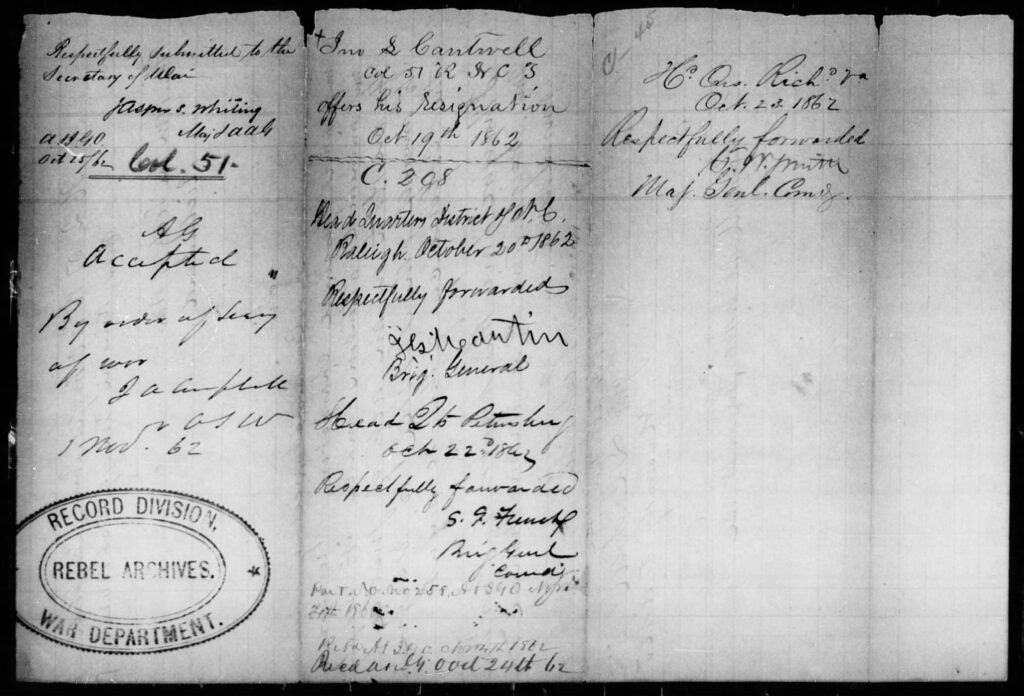 Respectfully submitted to the
Secretary of War
Jasper S. Whiting
Maj & AAG
A & IGO
Oct 25/62
Col. 51.
AG
Accepted
By order of Secy
of war
J A Campbell
A S W
1 Nov. 62
RECORD DIVISION.
REBEL ARCHIVES.
WAR DEPARTMENT.
Jno L Cantwell
Col 51 R N C T
offers his resignation
Oct 19th 1862
C. 298
Head Quarters District of N.C.
Raleigh, October 20th 1862
Respectfully forwarded
Jas G Martin
Brig. General
Head Qrs Petersburg
Oct 22d 1862
Respectfully forwarded
S. G. French
Brig Genl
Comdg
No 258
Recd A & I G O Oct 24th 62
C. 45
Hd Qrs. Richd Va
Oct. 23. 1862
Respectfully forwarded
G. W. Smith
Maj. Genl. Comdg.